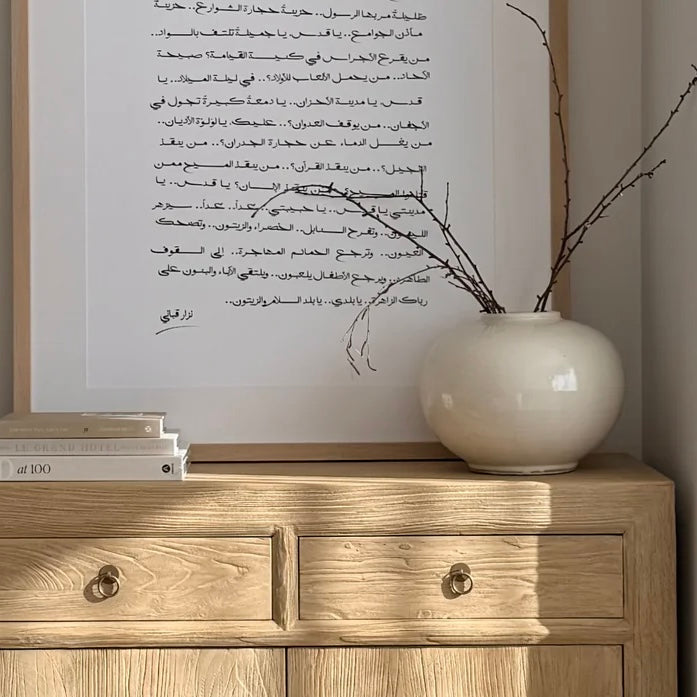 ظليلةٌ مر بها الرسول.. حزينةٌ حجارة الشوارع.. حزينةٌ
مآذن الجوامع.. يا قدس يا جميلةً تلتف بالسواد..
من يقرع الأجراس في كنيسة القيامة؟ صبيحة
الآحاد.. من يحمل الألعاب للأولاد؟.. في ليلة الميلاد.. يا
قدس يا مدينة الأحزان.. يا دمعةً كبيرةً تجول في
الأجفان.. من يوقف العدوان؟.. عليك يا لؤلؤة الأديان..
من يغسل الدماء عن حجارة الجدران؟.. من ينقذ
الإنجيل؟.. من ينقذ القرآن؟.. من ينقذ المسيح ممن
قتلوا المسيح؟ من ينقذ الإنسان؟ يا قدس.. يا
مدينتي يا قدس.. يا حبيبتي.. غداً.. غداً.. سيزهر
الليمون.. وتفرح السنابل.. الخضراء والزيتون.. وتضحك
العيون.. وترجع الحمائم المهاجرة.. إلى السقوف
الطاهرة.. ويرجع الأطفال يلعبون.. ويلتقي الآباء والبنون على
رباك الزاهرة.. يا بلدي.. يا بلد السلام والزيتون..
نزار قباني
LE GRAND HOTEL
at 100